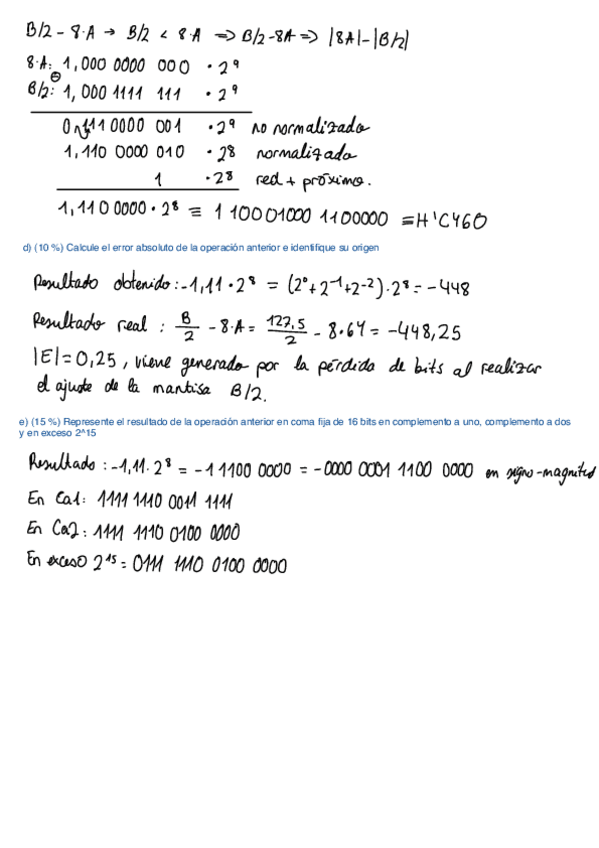 B/2 - 8·A → B/2 < 8·A ⇒ B/2-8A ⇒ |8A|-|B/2|
8·A: 1,000 0000 000 · 2⁹
⊖
B/2: 1,000 1111 111 · 2⁹
0,1110000 001 · 2⁹ no normalizado
1,110 0000 010 · 2⁸ normalizado
1 · 2⁸ red + próximo.
1,110 0000 · 2⁸ ≡ 1 10001000 1100000 = H'C460
d) (10 %) Calcule el error absoluto de la operación anterior e identifique su origen
Resultado obtenido: -1,11 · 2⁸ = (2⁰+2⁻¹+2⁻²)·2⁸ = -448
Resultado real : B/2 - 8·A = 127,5/2 - 8·64 = -448,25
|E| = 0,25, viene generado por la pérdida de bits al realizar
el ajuste de la mantisa B/2.
e) (15 %) Represente el resultado de la operación anterior en coma fija de 16 bits en complemento a uno, complemento a dos
y en exceso 2^15
Resultado: -1,11·2⁸ = -1 1100 0000 = -0000 0001 1100 0000 en signo-magnitud
En Ca1: 1111 1110 0011 1111
En Ca2: 1111 1110 0100 0000
En exceso 2¹⁵ = 0111 1110 0100 0000